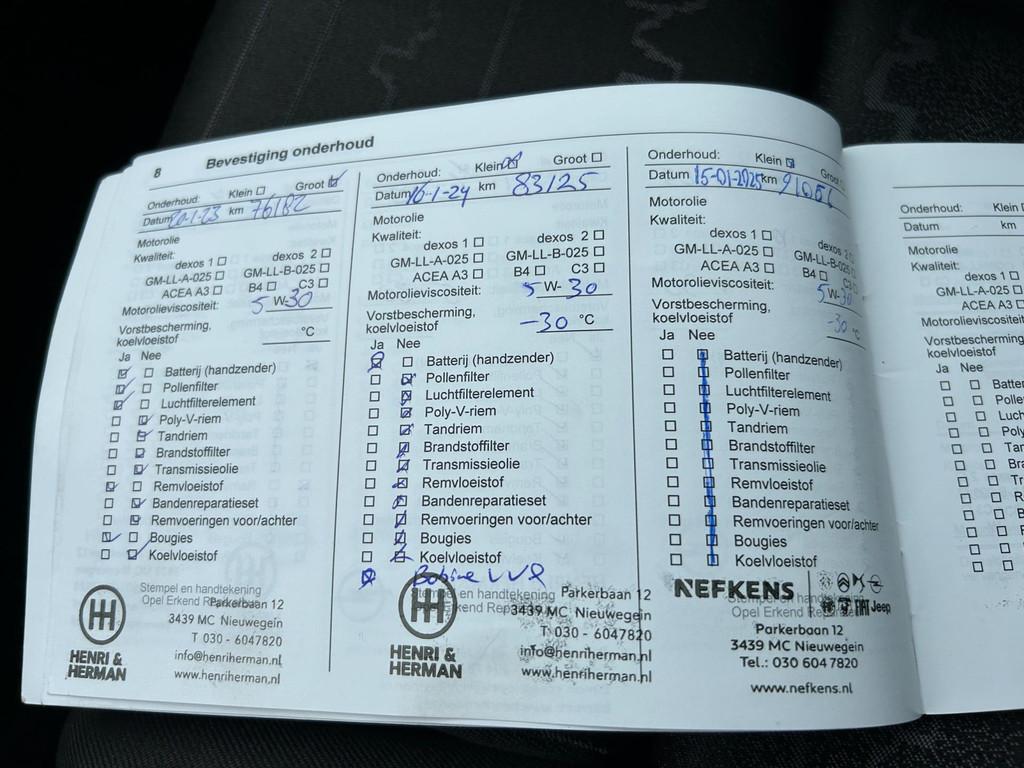 8 Bevestiging onderhoud
Onderhoud: Klein Groot
Datum 20-1-23 km 76182
Motorolie
Kwaliteit:
dexos 1 dexos 2
GM-LL-A-025 GM-LL-B-025
ACEA A3 B4 C3
Motorolieviscositeit: 5 W-30
Vorstbescherming,
koelvloeistof °C
Ja Nee
Batterij (handzender)
Pollenfilter
Luchtfilterelement
Poly-V-riem
Tandriem
Brandstoffilter
Transmissieolie
Remvloeistof
Bandenreparatieset
Remvoeringen voor/achter
Bougies
Koelvloeistof
Stempel en handtekening
Opel Erkend
Parkerbaan 12
3439 MC Nieuwegein
T 030 - 6047820
info@henriherman.nl
www.henriherman.nl
HENRI &
HERMAN
Onderhoud: Klein Groot
Datum 16-1-24 km 83125
Motorolie
Kwaliteit:
dexos 1 dexos 2
GM-LL-A-025 GM-LL-B-025
ACEA A3 B4 C3
Motorolieviscositeit: 5 W-30
Vorstbescherming,
koelvloeistof -30 °C
Ja Nee
Batterij (handzender)
Pollenfilter
Luchtfilterelement
Poly-V-riem
Tandriem
Brandstoffilter
Transmissieolie
Remvloeistof
Bandenreparatieset
Remvoeringen voor/achter
Bougies
Koelvloeistof
Stempel en handtekening
Erkend
Parkerbaan 12
3439 MC Nieuwegein
T 030 - 6047820
info@henriherman.nl
www.henriherman.nl
HENRI &
HERMAN
Onderhoud: Klein Groot
Datum 15-01-2025 km
Motorolie
Kwaliteit:
dexos 1 dexos 2
GM-LL-A-025 GM-LL-B-025
ACEA A3 B4 C3
Motorolieviscositeit: 5 W-30
Vorstbescherming,
koelvloeistof -30 °C
Ja Nee
Batterij (handzender)
Pollenfilter
Luchtfilterelement
Poly-V-riem
Tandriem
Brandstoffilter
Transmissieolie
Remvloeistof
Bandenreparatieset
Remvoeringen voor/achter
Bougies
Koelvloeistof
NEFKENS
Stempel en handtekening
Opel Erkend
FIAT Jeep
Parkerbaan 12
3439 MC Nieuwegein
Tel.: 030 604 7820
www.nefkens.nl
Onderhoud: Klein
Datum km
Motorolie
Kwaliteit:
dexos 1
GM-LL-A-025
ACEA A3
Motorolieviscositeit
Vorstbescherming
koelvloeistof
Ja Nee